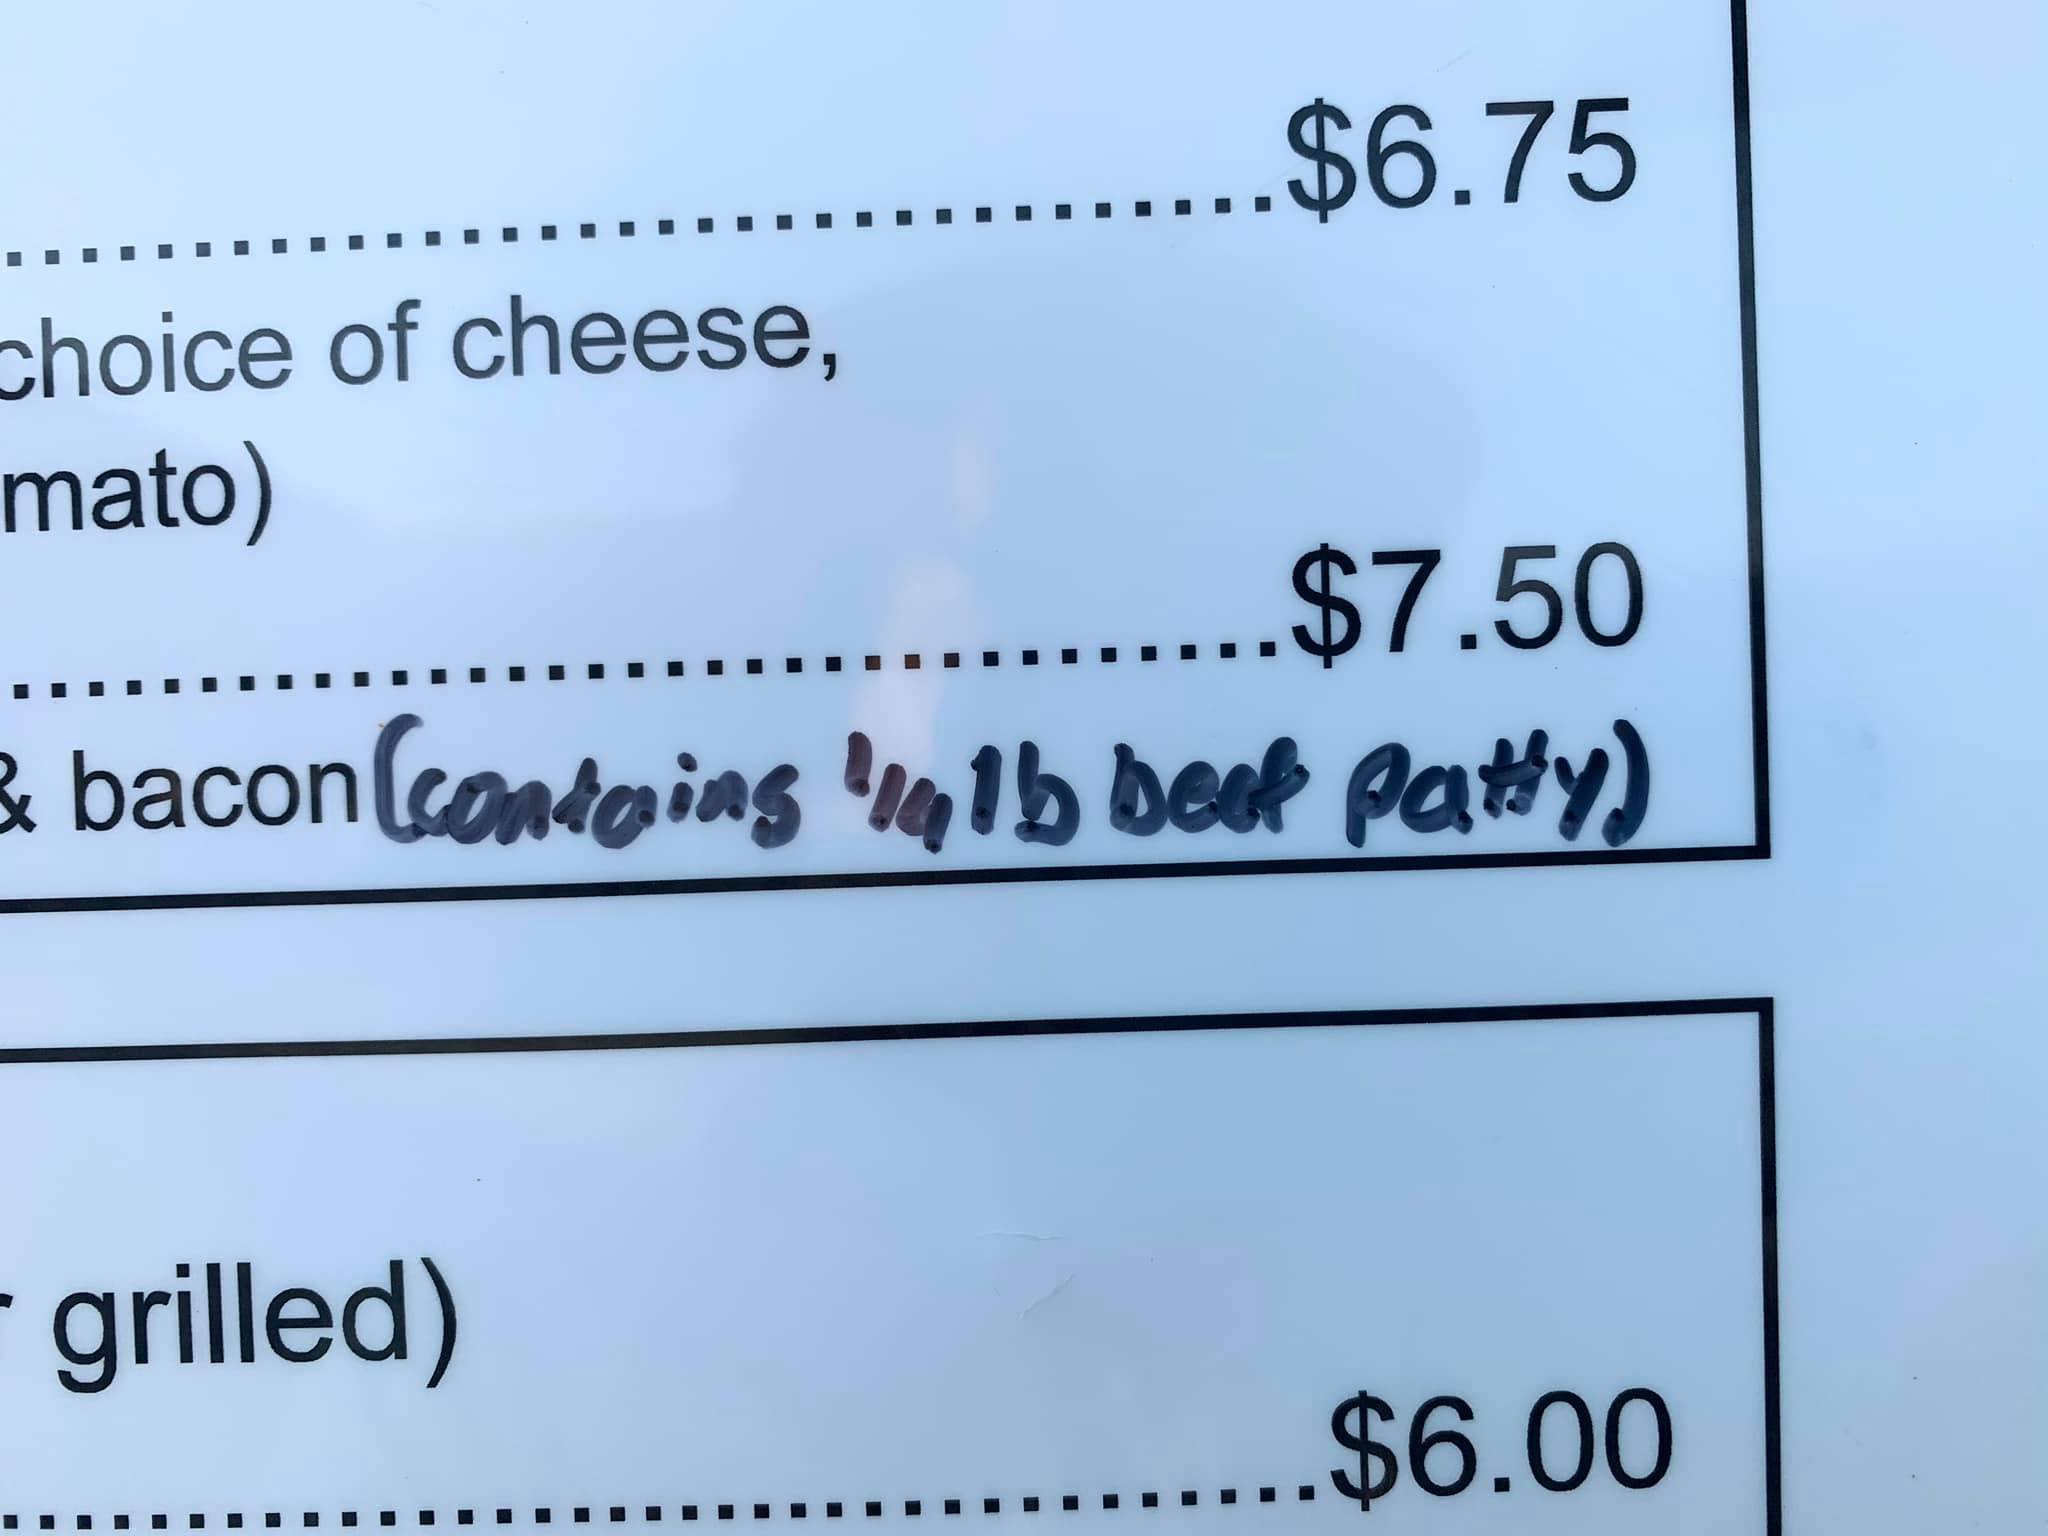 $6.75
choice of cheese,
mato)
$7.50
& bacon (contains 1/4 lb beef patty)
grilled)
$6.00